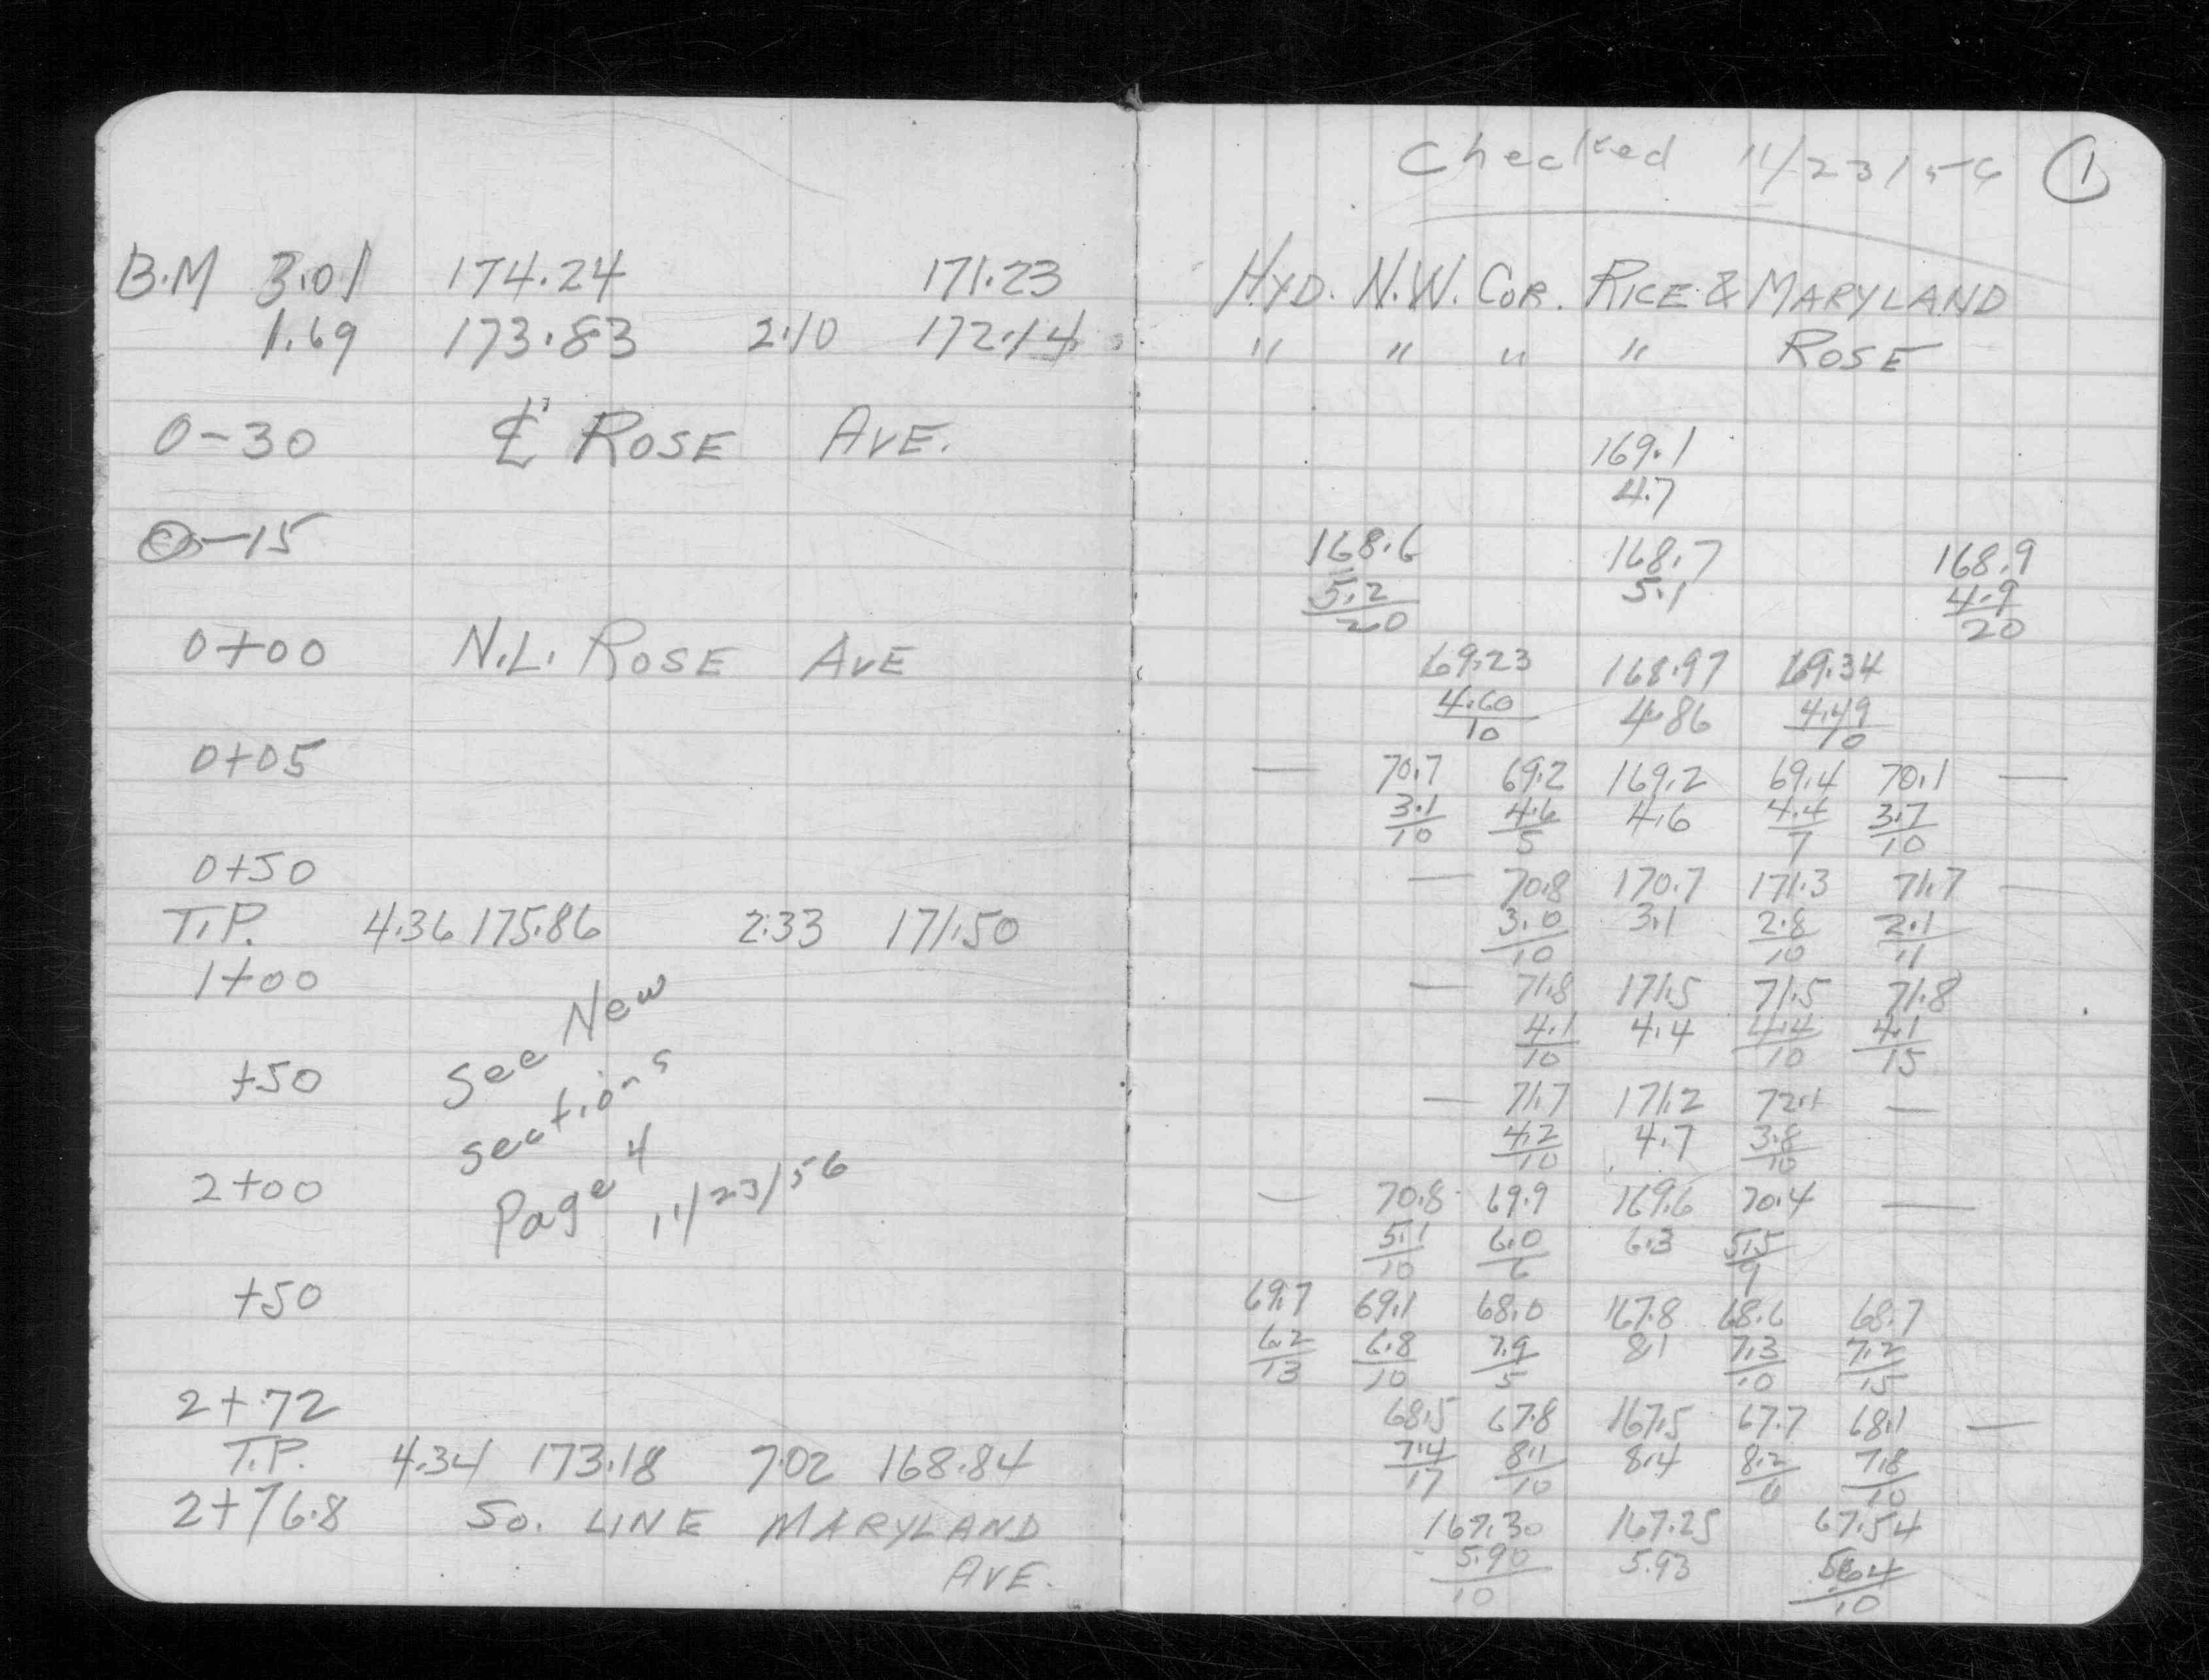 B.M 3.01 174.24 171.23
1.69 173.83 2.10 172.14
0-30 ℄ ROSE AVE.
0-15
0+00 N.L. ROSE AVE
0+05
0+50
T.P. 4.36 175.86 2.33 171.50
1+00
See New
+50
sections
Page 4
2+00
11/23/56
+50
2+72
T.P. 4.34 173.18 7.02 168.84
2+76.8 SO. LINE MARYLAND
AVE.
Checked 11/23/56 1
HYD. N.W. COR. RICE & MARYLAND
" " " " ROSE
169.1
4.7
168.6 168.7 168.9
5.2 5.1 4.9
20 20
69.23 168.97 69.34
4.60 4.86 4.49
10 10
— 70.7 69.2 169.2 69.4 70.1 —
3.1 4.6 4.6 4.4 3.7
10 5 7 10
— 70.8 170.7 171.3 71.7 —
3.0 3.1 2.8 2.1
10 10 11
— 71.8 171.5 71.5 71.8
4.1 4.4 4.4 4.1
10 10 15
— 71.7 171.2 72.1 —
4.2 4.7 3.8
10 10
— 70.8 69.9 169.6 70.4 —
5.1 6.0 6.3 5.5
10 6 9
69.7 69.1 68.0 167.8 68.6 68.7
6.2 6.8 7.9 8.1 7.3 7.2
13 10 5 10 15
68.5 67.8 167.5 67.7 68.1 —
7.4 8.1 8.4 8.2 7.8
17 10 6 10
167.30 167.25 67.54
5.90 5.93 5.64
10 10